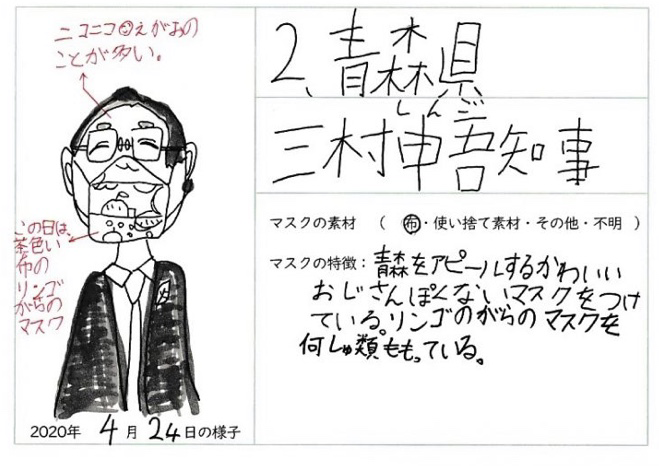 ニコニコえがおの
ことが多い。
この日は、
茶色い
布の
リンゴ
がらの
マスク
2020年 4月 24日の様子
2、青森県
しんご
三村申吾知事
マスクの素材 （ 布・使い捨て素材・その他・不明 ）
マスクの特徴：青森をアピールするかわいい
おじさんぽくないマスクをつけ
ている。リンゴのがらのマスクを
何しゅ類ももっている。